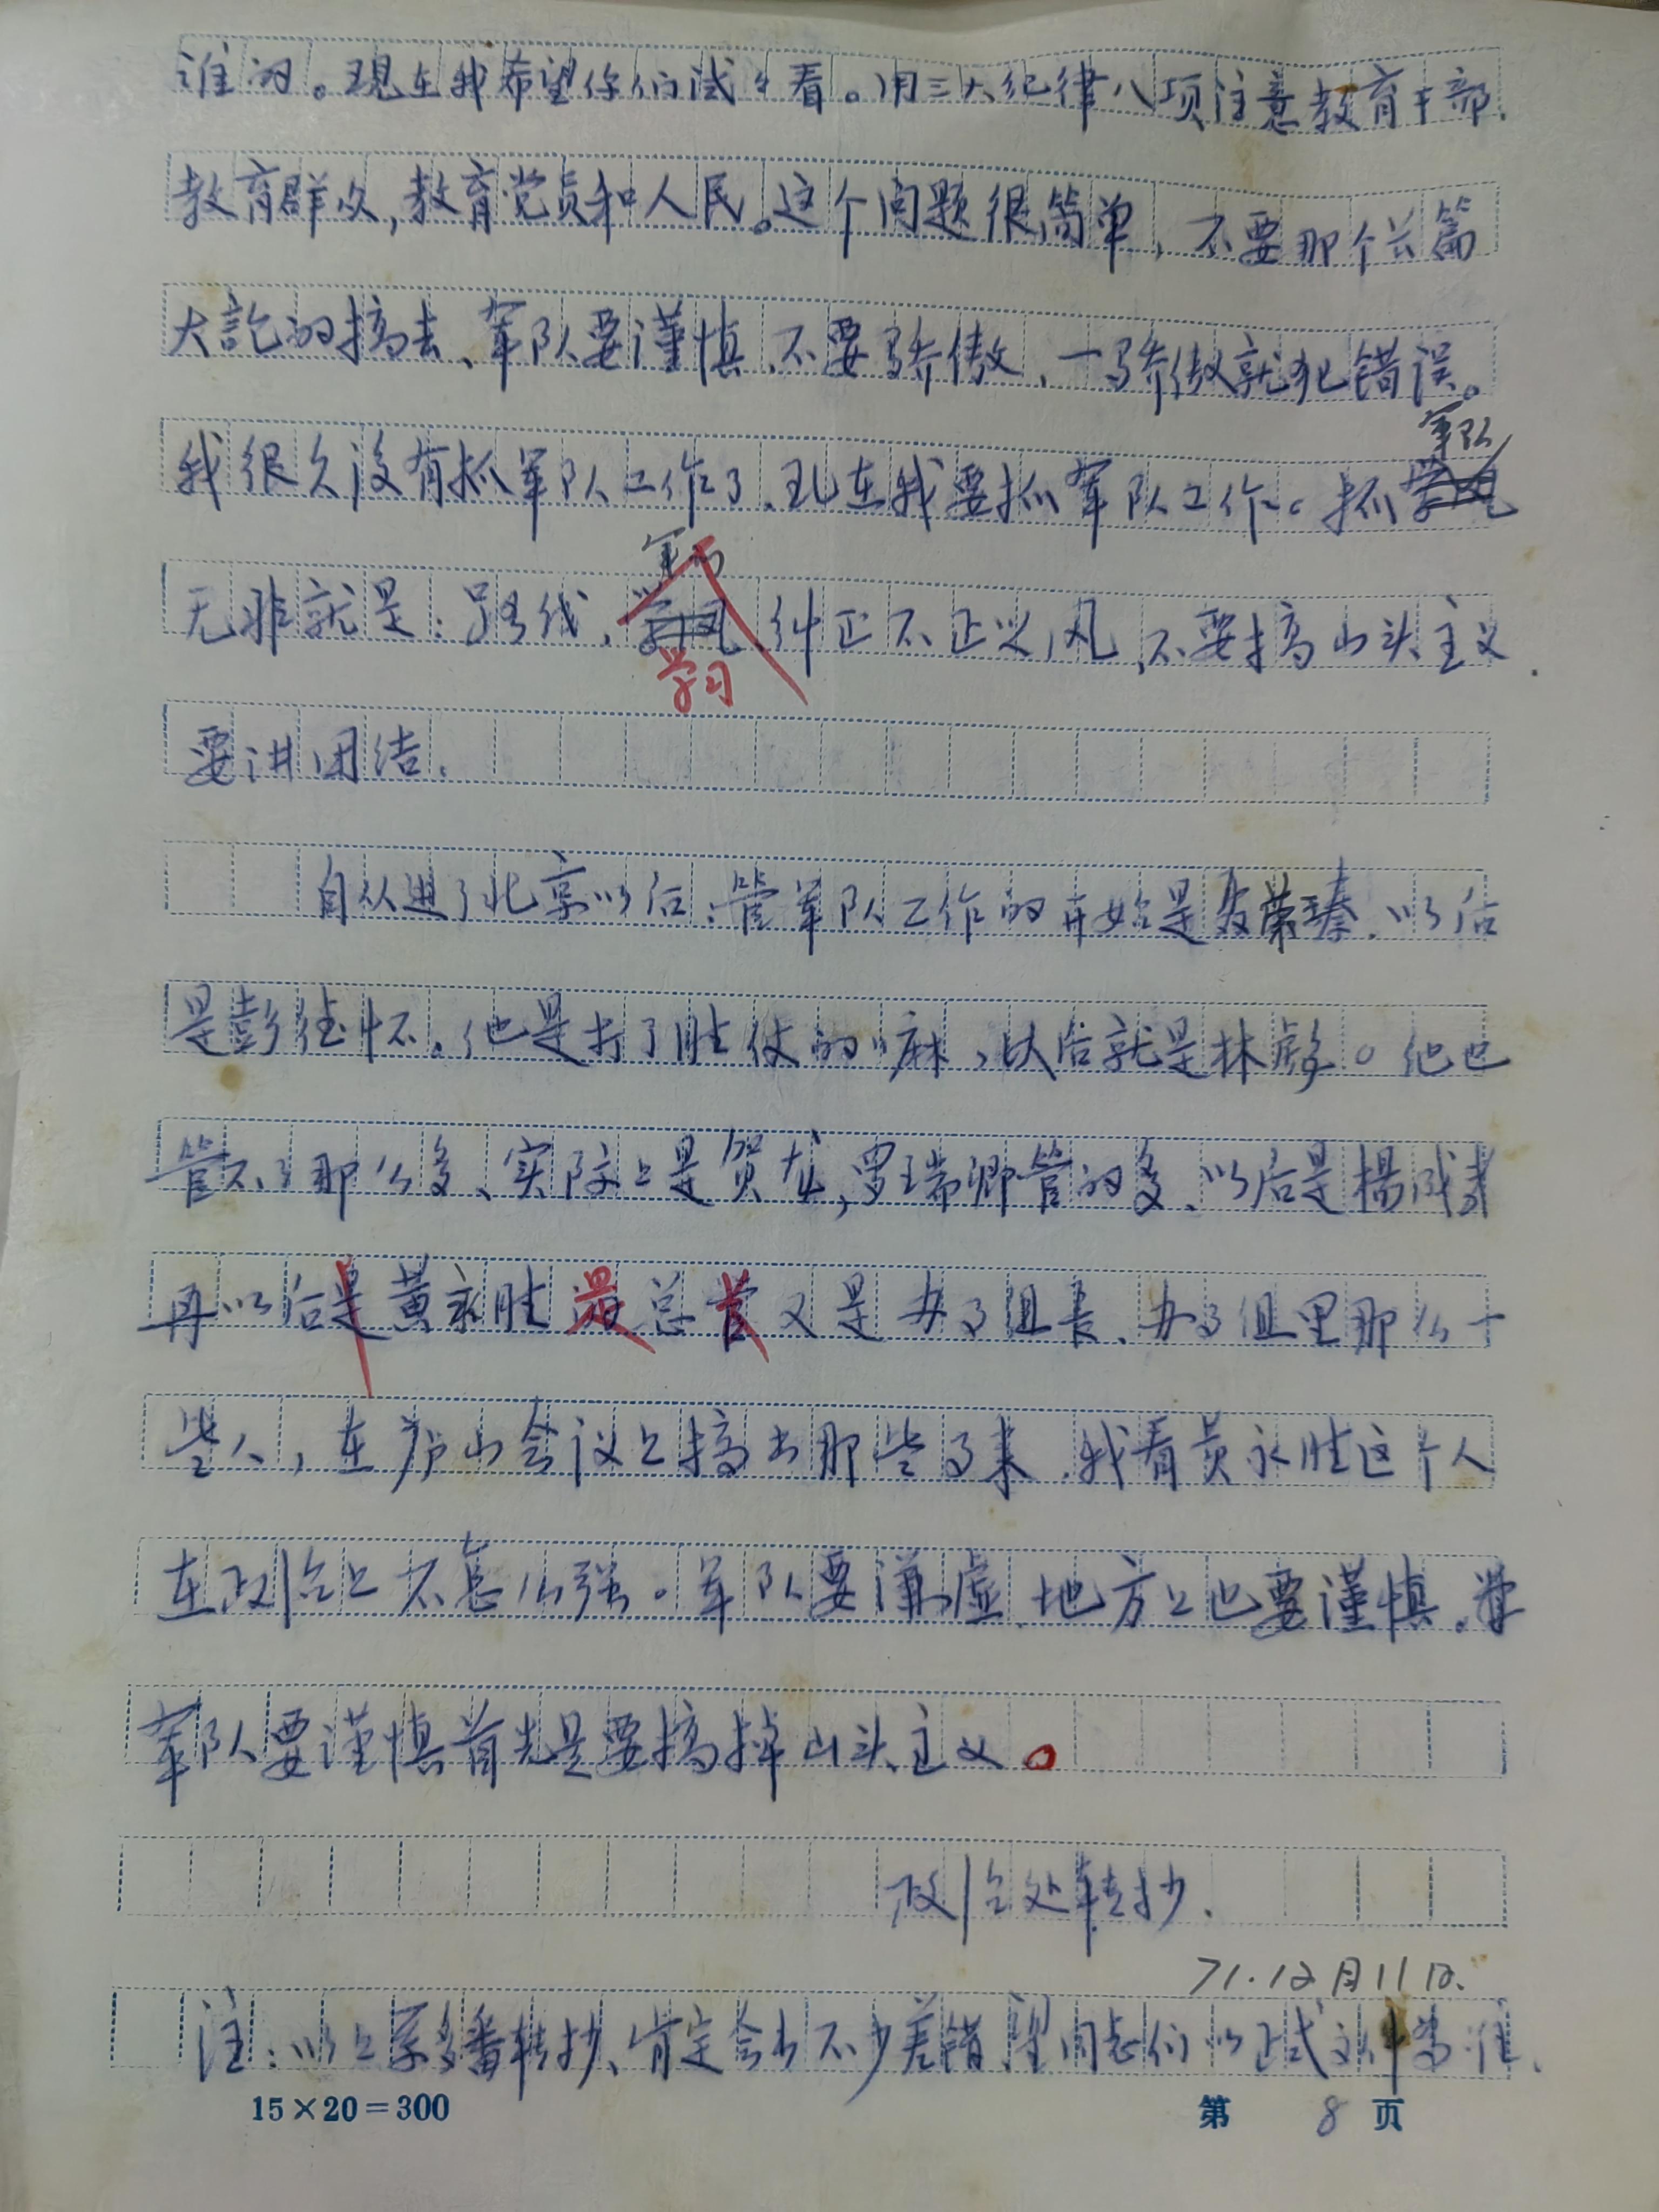 谁的。现在我希望你们试々看。用三大纪律八项注意教育干部、
教育群众,教育党员和人民。这个问题很简单、不要那个长篇
大论的搞去、军队要谨慎、不要骄傲、一骄傲就犯错误。
军队
我很久没有抓军队工作了、现在我要抓军队工作。抓
无非就是:路线、学风 纠正不正之风、不要搞山头主义、
学习
要讲团结.
自从进了北京以后:管军队工作的开始是聂荣臻、以后
是彭德怀。他是打了胜仗的嘛,以后就是林彪。他也
管不了那么多、实际上是贺龙,罗瑞卿管的多、以后是楊成武
再以后是黄永胜 最总管又是办事组长、办事组里那么一
些人,在庐山会议上搞出那些事来.我看黄永胜这个人
在政治上不怎么强。军队要谦虚、地方上也要谨慎。
军队要谨慎首先是要搞掉山头主义。
政治处转抄.
71.12月11日.
注:以上系多番转抄、肯定会出不少差错、望同志们以正式文件为准.
15×20=300 第 8 页